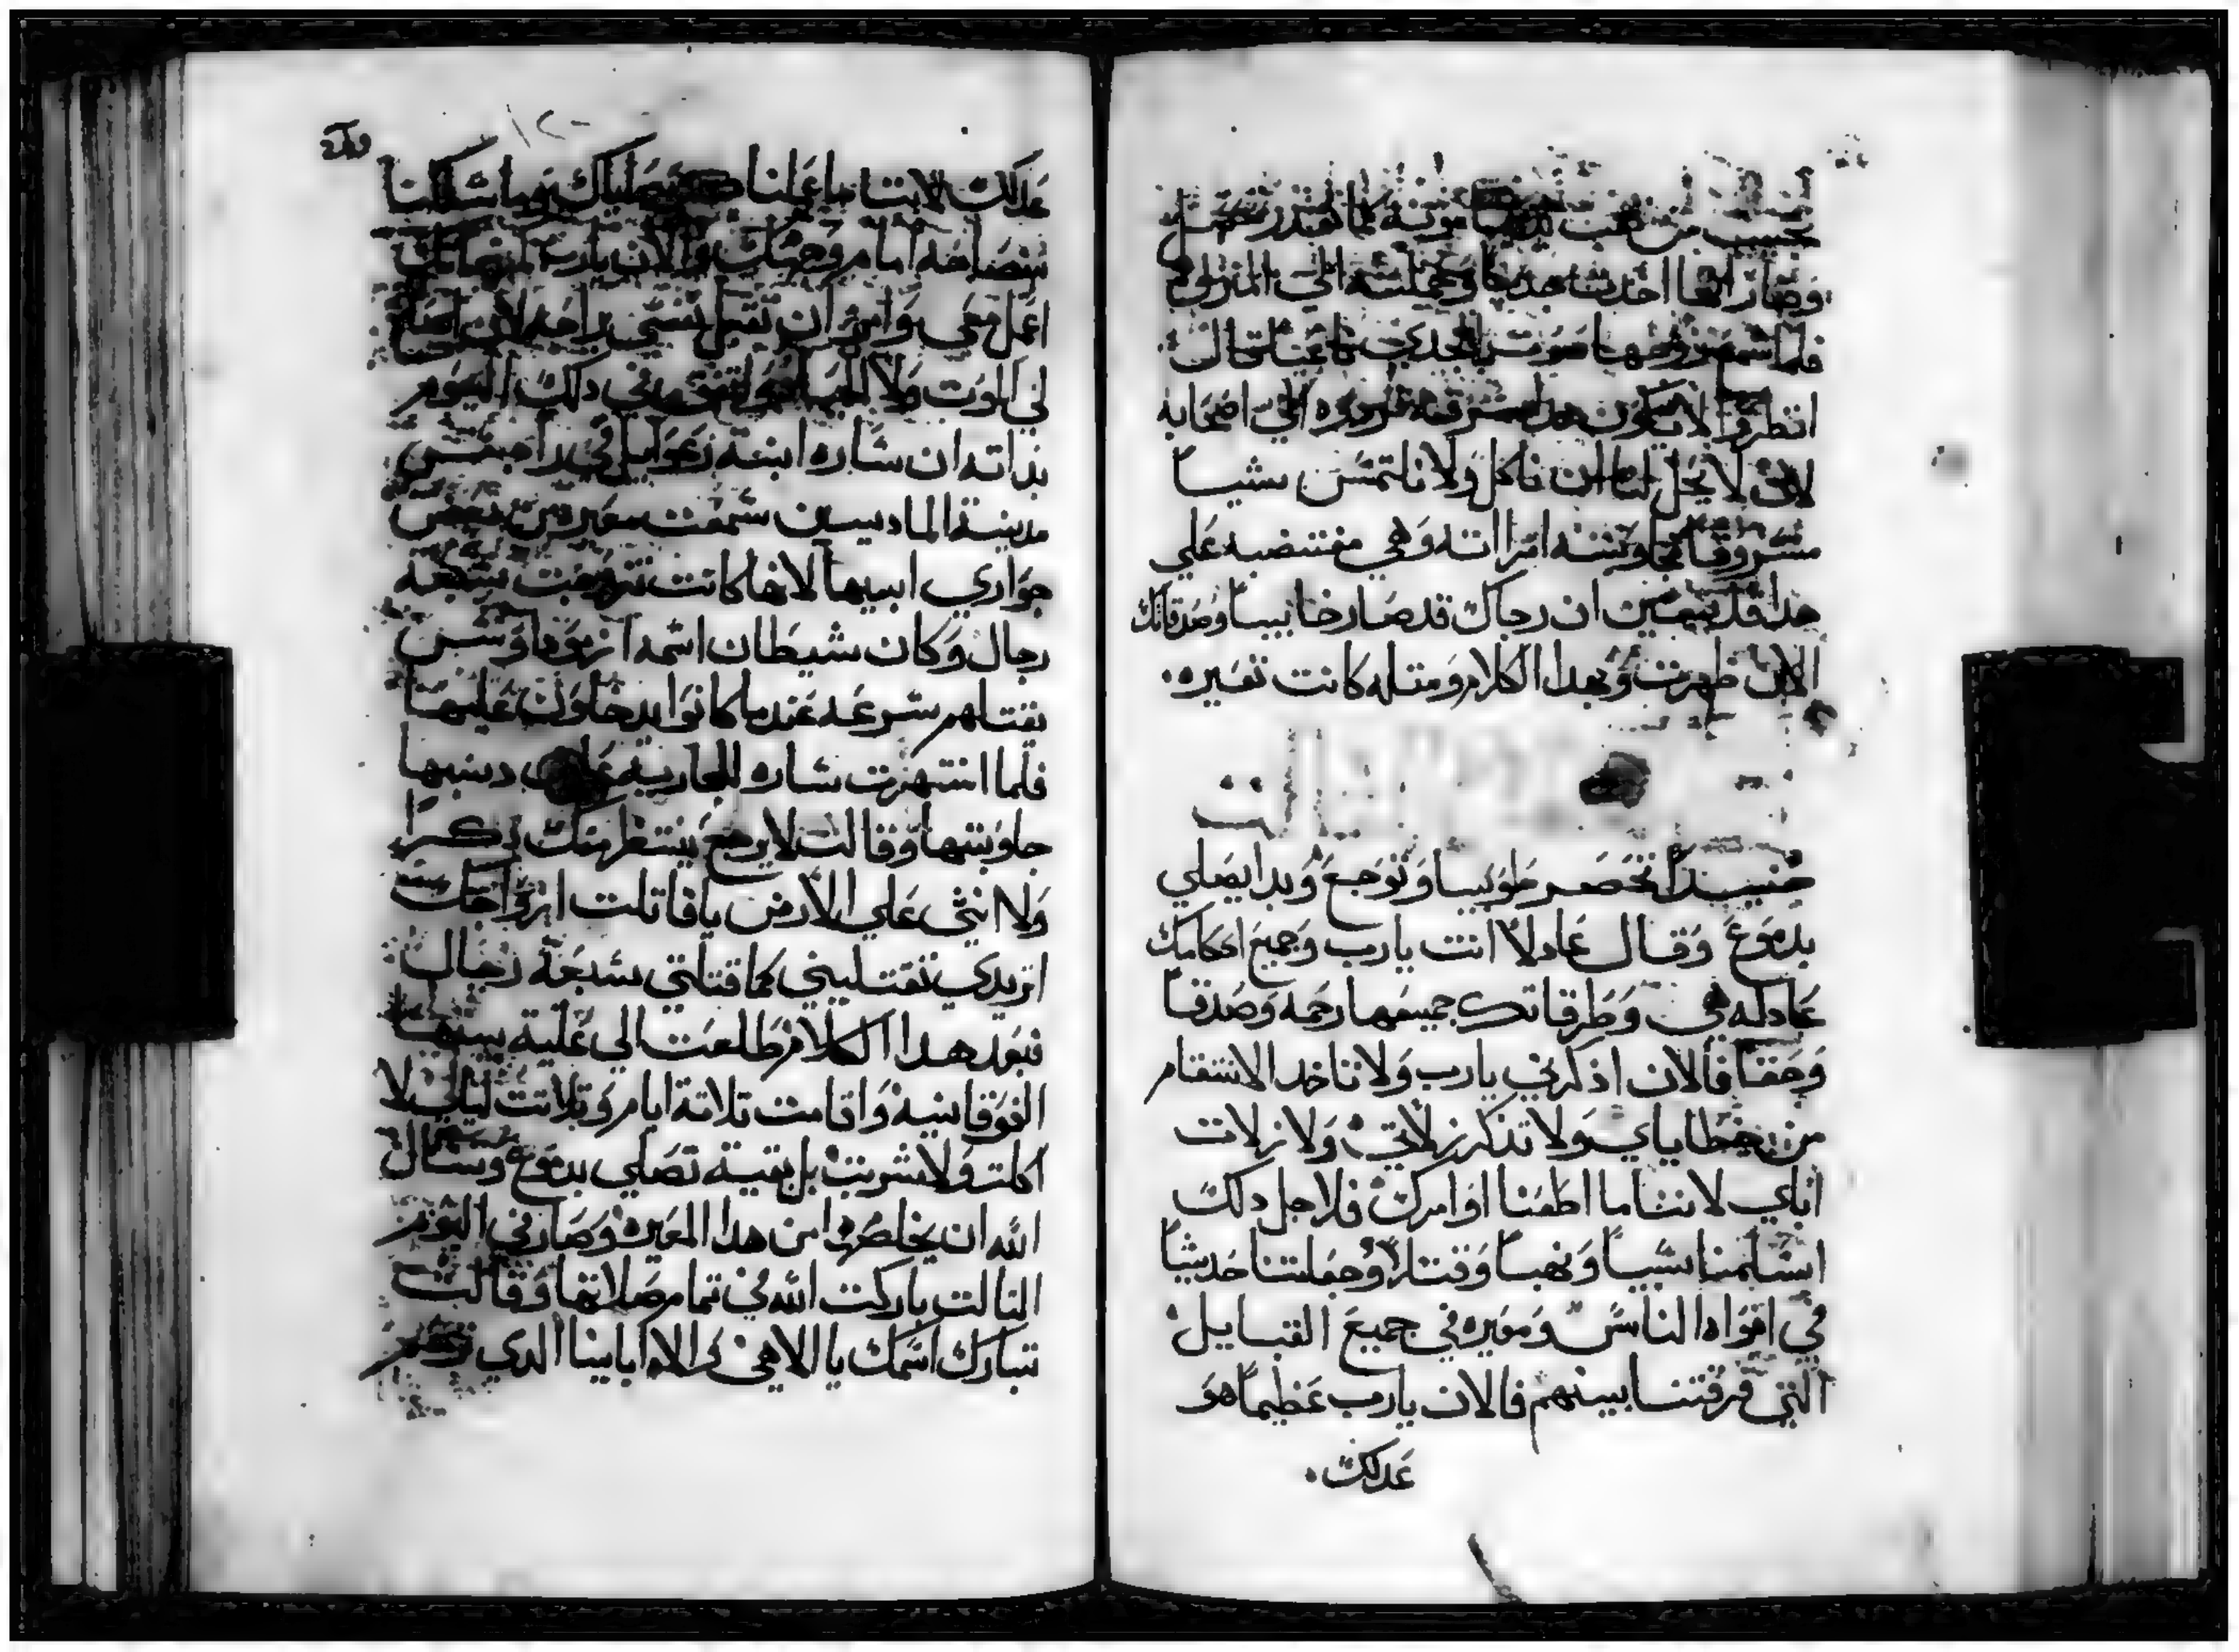 بحسب من تعب يديها مونة مما تقدر تحصل
وصار انها اخدت جديا وحملته الي المنزل
فلما سمع زوجها صوت الجدي قال
انظروا لا يكون هدا مسروقا ردوه الي اصحابه
لانه لا يحل لنا ان ناكل ولا نلتمس شيا
مسروقا فجاوبته امراته وهي مغتضبه علي
هدا قد تبين ان رجاك قد صار خايبا وصدقاتك
الان ظهرت وبهدا الكلام ومتله كانت تعيره
حنييدا تحصر طوبيا وتوجع وبدا يصلي
بدموع وقال عادلا انت يارب وجميع احكامك
عادله هي وطرقاتك جميعها رحمه وصدقا
وحقا فالان اذكرني يارب ولا تاخد الانتقام
من خطاياي ولا تذكر زلاتي ولا زلات
اباي لاننا ما اطعنا اوامرك فلاجل دلك
اسلمنا سبيا ونهبا وقتلا وجعلتنا حديثا
في افواه الناس ومعيره في جميع القبايل
التي فرقتنا بينهم فالان يارب عظيما هو
عدلك
١٢٠
عدلك لاننا ما عملنا وصاياك وما سلكنا
بنصاحه امام وجهك والان يارب
اعمل معي وامر ان تقبل نفسي براحه لان اصلح
لي الموت ولا الحياه في دلك اليوم
بداته ان ساره ابنة رعوايل في
مدينة الماديين سمعت معيره من بعض
جواري ابيها لانها كانت تزوجت بسبعة
رجال وكان شيطان اسمه ازموداوس
يقتلهم سرعه عندما كانوا يدخلون عليها
فلما انتهزت ساره للجاريه علي دنبها
جاوبتها وقالت لا يرجع ينتظر منك دكرا
ولا انثي علي الارض يا قاتلت ازواجك
اتريدي تقتليني كما قتلتي سبعة رجال
فبعد هدا الكلام طلعت الي علية بيتها
الفوقانيه واقامت تلاتة ايام وتلاتت ليالي لا
اكلت ولا شربت بل بقية تصلي بدموع وتسال
الله ان يخلصها من هدا المعيره وصار في اليوم
التالت باركت الله في تمام صلاتها وقالت
تبارك اسمك يا الاهي الاه ابايينا الدي